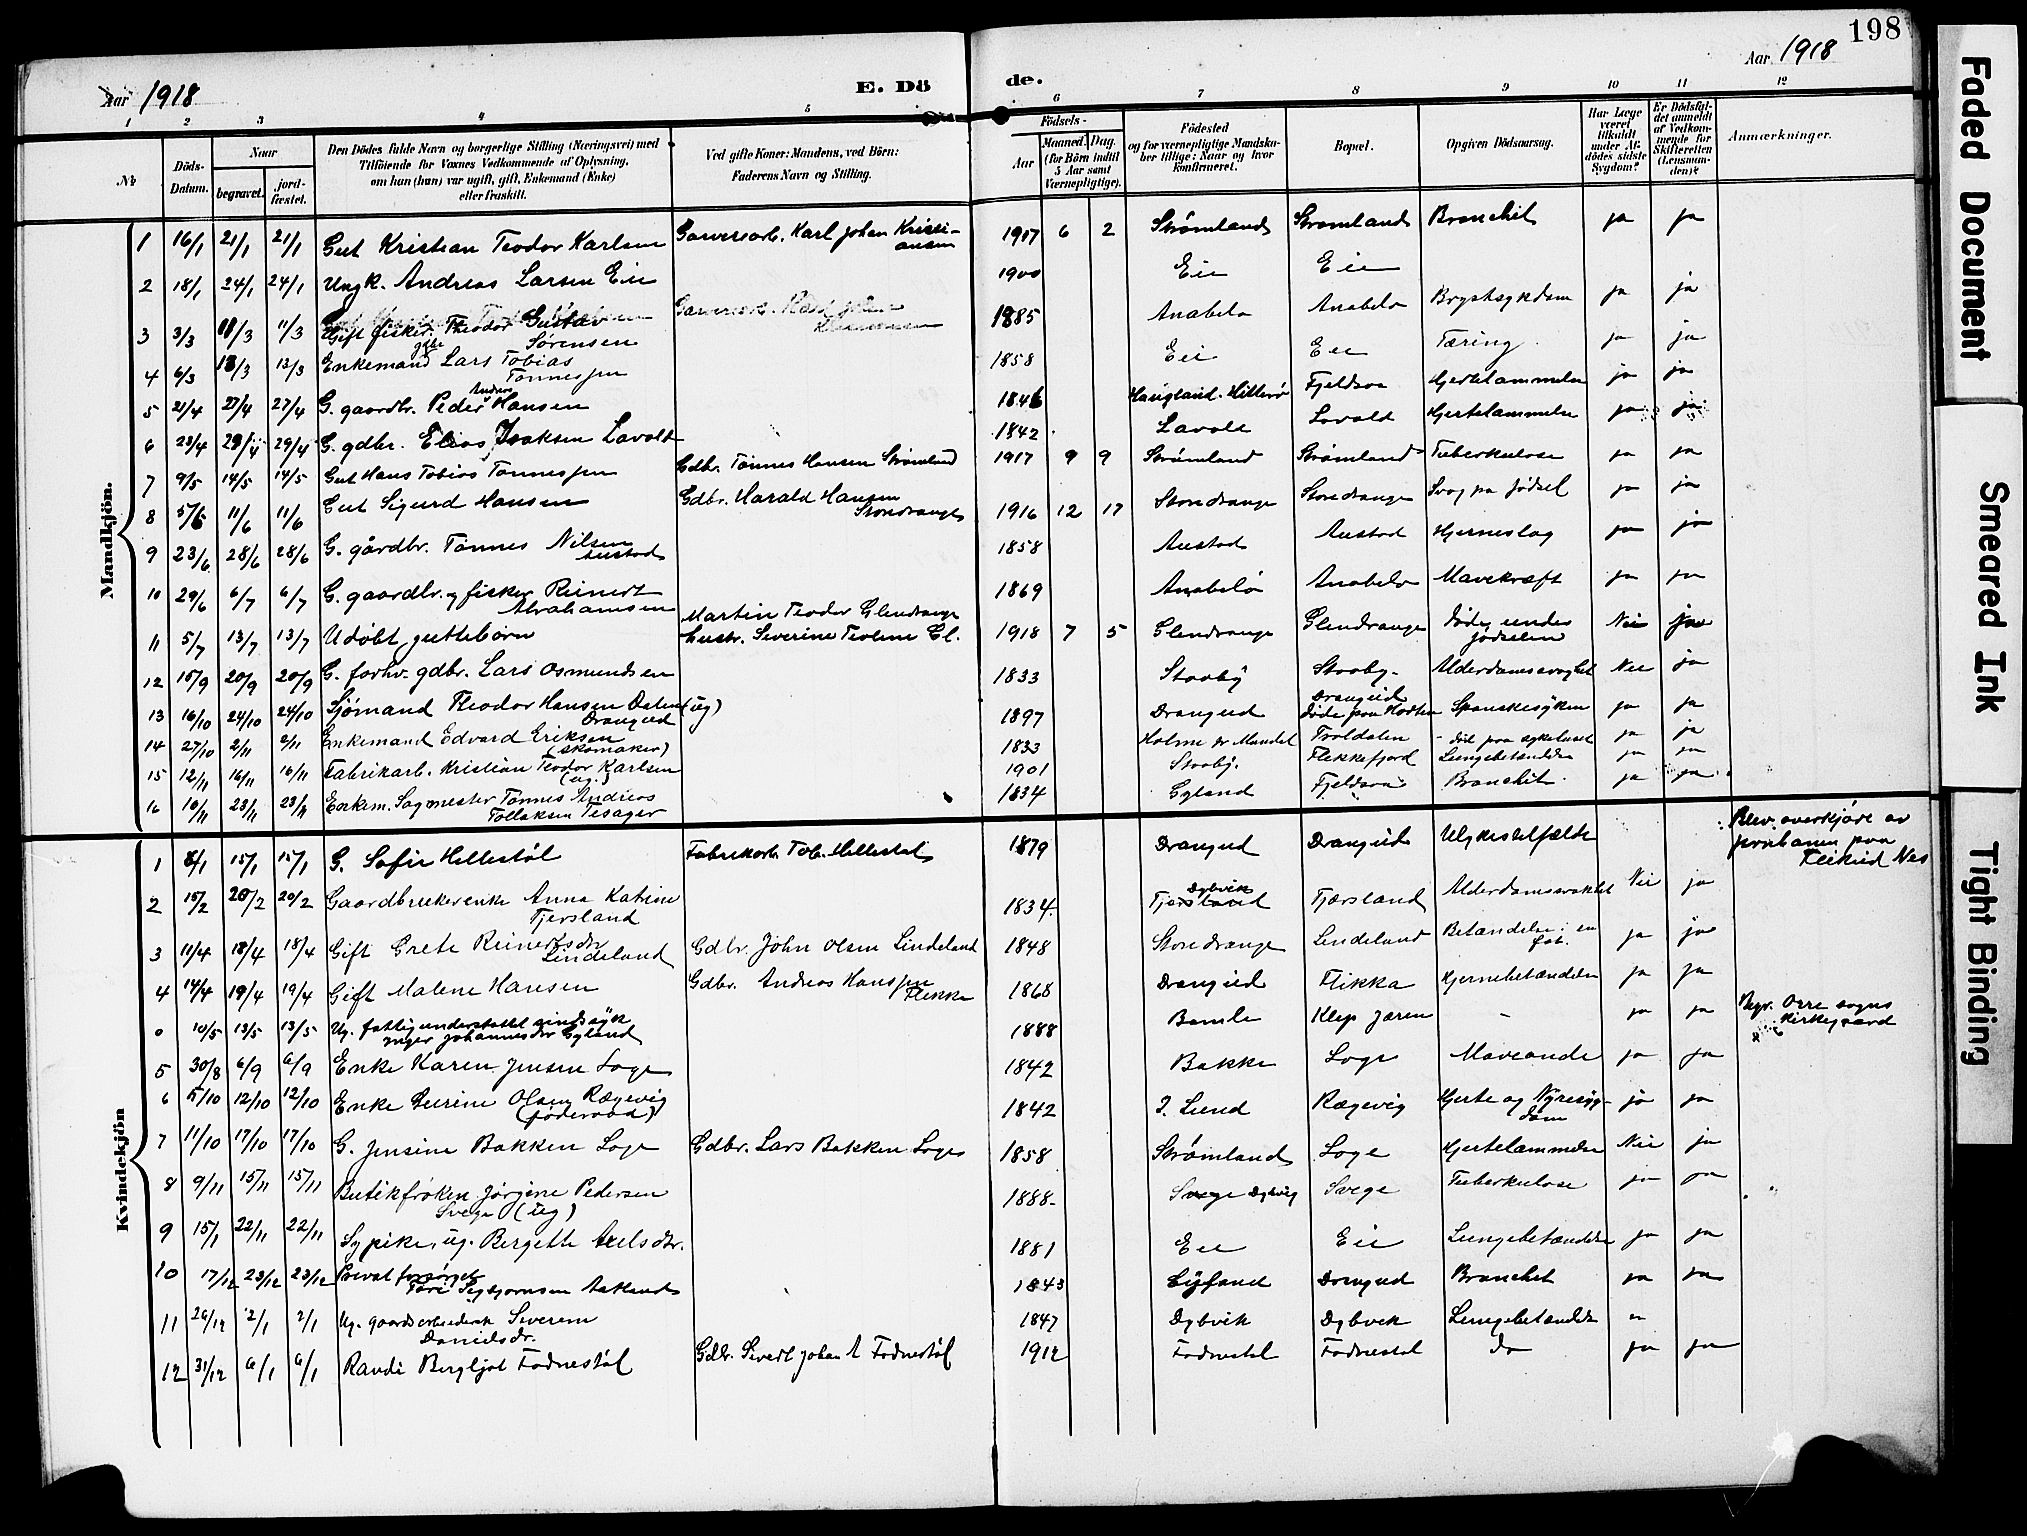 198
Aar 1918
E. Dö
de.
Aar 1918
1 2 3 4 5 6 7 8 9 10 11 12
№
Döds-Datum.
Naar
begravet.
jord-fæstet.
Den Dödes fulde Navn og borgerlige Stilling (Næringsvei) med
Tilföiende for Voxnes Vedkommende af Oplysning,
om han (hun) var ugift, gift, Enkemand (Enke)
eller fraskilt.
Ved gifte Koner: Mandens, ved Börn:
Faderens Navn og Stilling.
Födsels-
Aar
Maaned. Dag.
(for Börn indtil
5 Aar samt
Værnepligtige).
Födested
og for værnepligtige Mandska-
ber tillige: Naar og hvor
Konfirmeret.
Bopæl.
Opgiven Dödsaarsag.
Har Læge
været
tilkaldt
under Af-
dödes sidste
Sygdom?
Er Dödsfal-
det anmeldt
af Vedkom-
mende for
Skifteretten
(Lensman-
den)?
Anmærkninger.
Mandkjön.
1 16/1 21/1 21/1 Gut Kristian Teodor Karlsen Garverarb. Karl Johan Kristi-
ansen 1917 6 2 Strømland Strømland Bronchit ja ja
2 18/1 24/1 24/1 Ungk. Andreas Larsen Eie 1900 Eie Eie
3 3/3 11/3 11/3 Gift fisker Theodor Gustav
Sørensen 1885 Anabelø Anabelø Brystsykdom ja ja
4 6/3 13/3 13/3 Enkemand Lars Tobias
Tønnessen 1858 Eie Eie Tæring ja ja
5 21/4 27/4 27/4 G. gaardbr. Peder Andreas Hansen 1846 Haugland. Hitterø Fjeldsaa Hjertelammelse ja ja
6 23/4 29/4 29/4 G. gdbr. Elias Isaksen Lavold 1842 Lavole Lavold Hjertelammelse ja ja
7 9/5 14/5 14/5 Gut Hans Tobias Tønnessen Gdbr. Tønnes Hansen Strømland 1917 9 9 Strømland Strømland Tuberkulose ja ja
8 5/6 11/6 11/6 Gut Sigurd Hansen Gdbr. Harald Hansen
Storedrange 1916 12 17 Storedrange Storedrange Svag fra fødsel ja ja
9 23/6 28/6 28/6 G. gårdbr. Tønnes Nilsen
Austad 1858 Austad Austad Hjerneslag ja ja
10 29/6 6/7 6/7 G. gaardbr. og fisker Reinert
Abrahamsen 1869 Anabelø Anabelø Mavekræft ja ja
11 5/7 13/7 13/7 Udøbt guttebørn Martin Teodor Glendrange
hustr. Severine Teoline Gl. 1918 7 5 Glendrange Glendrange Døde under
fødselen Nei ja
12 15/9 20/9 20/9 G. forhv. gdbr. Lars Osmundsen 1833 Stoøby Stoøby Alderdomssvaghet Nei ja
13 16/10 24/10 24/10 Sjømand Theodor Hansen Dalen (ug)
Drangeid 1897 Drangeid Drangeid
Døde paa Horten Spanskesyken ja ja
14 27/10 2/11 2/11 Enkemand Edvard Eriksen
(skomaker) 1833 Holme pr Mandal Troldalen - død paa sykehuset ja ja
15 12/11 16/11 16/11 Fabrikarb. Kristian Teodor Karlsen
(ug.) 1901 Stoøby. Flekkefjord Lungebetændelse ja ja
16 16/11 23/11 23/11 Enkem. Sagmester Tønnes Andreas
Tollaksen Tesager 1834 Gyland Fjeldsaa Bronchit ja ja
Kvindekjön
1 8/1 15/1 15/1 G. Sofie Hellestøl Fabrikarb. Tob. Hellestøl 1879 Drangeid Drangeid Ulykkestilfælde Blev overkjørt av
jernbanen paa
Flikeid Nes
2 15/2 20/2 20/2 Gaardbrukerenke Anna Katrine
Tjersland 1834. Dybvik Tjørsland Alderdomssvakhet Nei ja
3 11/4 18/4 18/4 Gift Grete Reinertsdtr
Lindeland Gdbr. John Olsen Lindeland 1848 Storedrange Lindeland Betændelse i en
fot. ja ja
4 14/4 19/4 19/4 Gift Malene Hansen Gdbr. Andreas Hanssen
Flikka 1868 Drangeid Flikka Hjernebetændelse ja ja
0 10/5 13/5 13/5 Ug. fattigunderstøttet sindssyk
Inger Johannesdtr Gyland 1888 Klep Jæren - ja ja Begr. Orre sogns
kirkegaard
5 30/8 6/9 6/9 Enke Karen Jensen Loge 1842 Bakke Loge Maveonde ja ja
6 5/10 12/10 12/10 Enke Olsen Rægevig
(føderaad) 1842 S. Lund Rægevig Hjerte og Nyresyg-
dom ja ja
7 11/10 17/10 17/10 G. Jensine Bakken Loge Gdbr. Lars Bakken Loge 1858 Strømland Loge Hjertelammelse Nei ja
8 9/11 15/11 15/11 Butikfrøken Jørgine Pedersen
Svege (ug) 1888- Svege Dybvig Svege Tuberkulose ja ja
9 15/1 22/11 22/11 Sypike, ug. Bergette Axelsdtr. 1881 Eie Eie Lungebetændelse ja ja
10 17/12 23/12 23/12 Privat forsørget
Tore Sigbjørnsen 1843 Gyland Drangeid Bronchit ja ja
11 26/12 2/1 2/1 Ug. gaardsarbeiderske Severine
Danielsdtr. 1847 Dybvik Dybvik Lungebetændelse "
12 31/12 6/1 6/1 Randi Bergljot Fodnestøl Gdbr. Sivert Johan A Fodnestøl 1912 Fodnestøl Fodnestøl do ja ja
Faded Document
Smeared Ink
Tight Binding